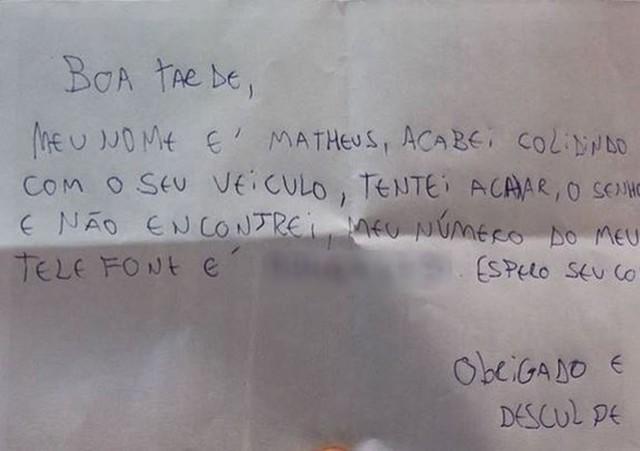 BOA TARDE,
MEU NOME E' MATHEUS, ACABEi COLiDiNDO
COM O SEU VEiCULO, TENTEi ACHAR, O SENHO
E NÃO ENCONTREi, MEU NÚMERO DO MEU
TELEFONE E' . ESPERO SEU CO
ObRiGADO E
DESCULPE